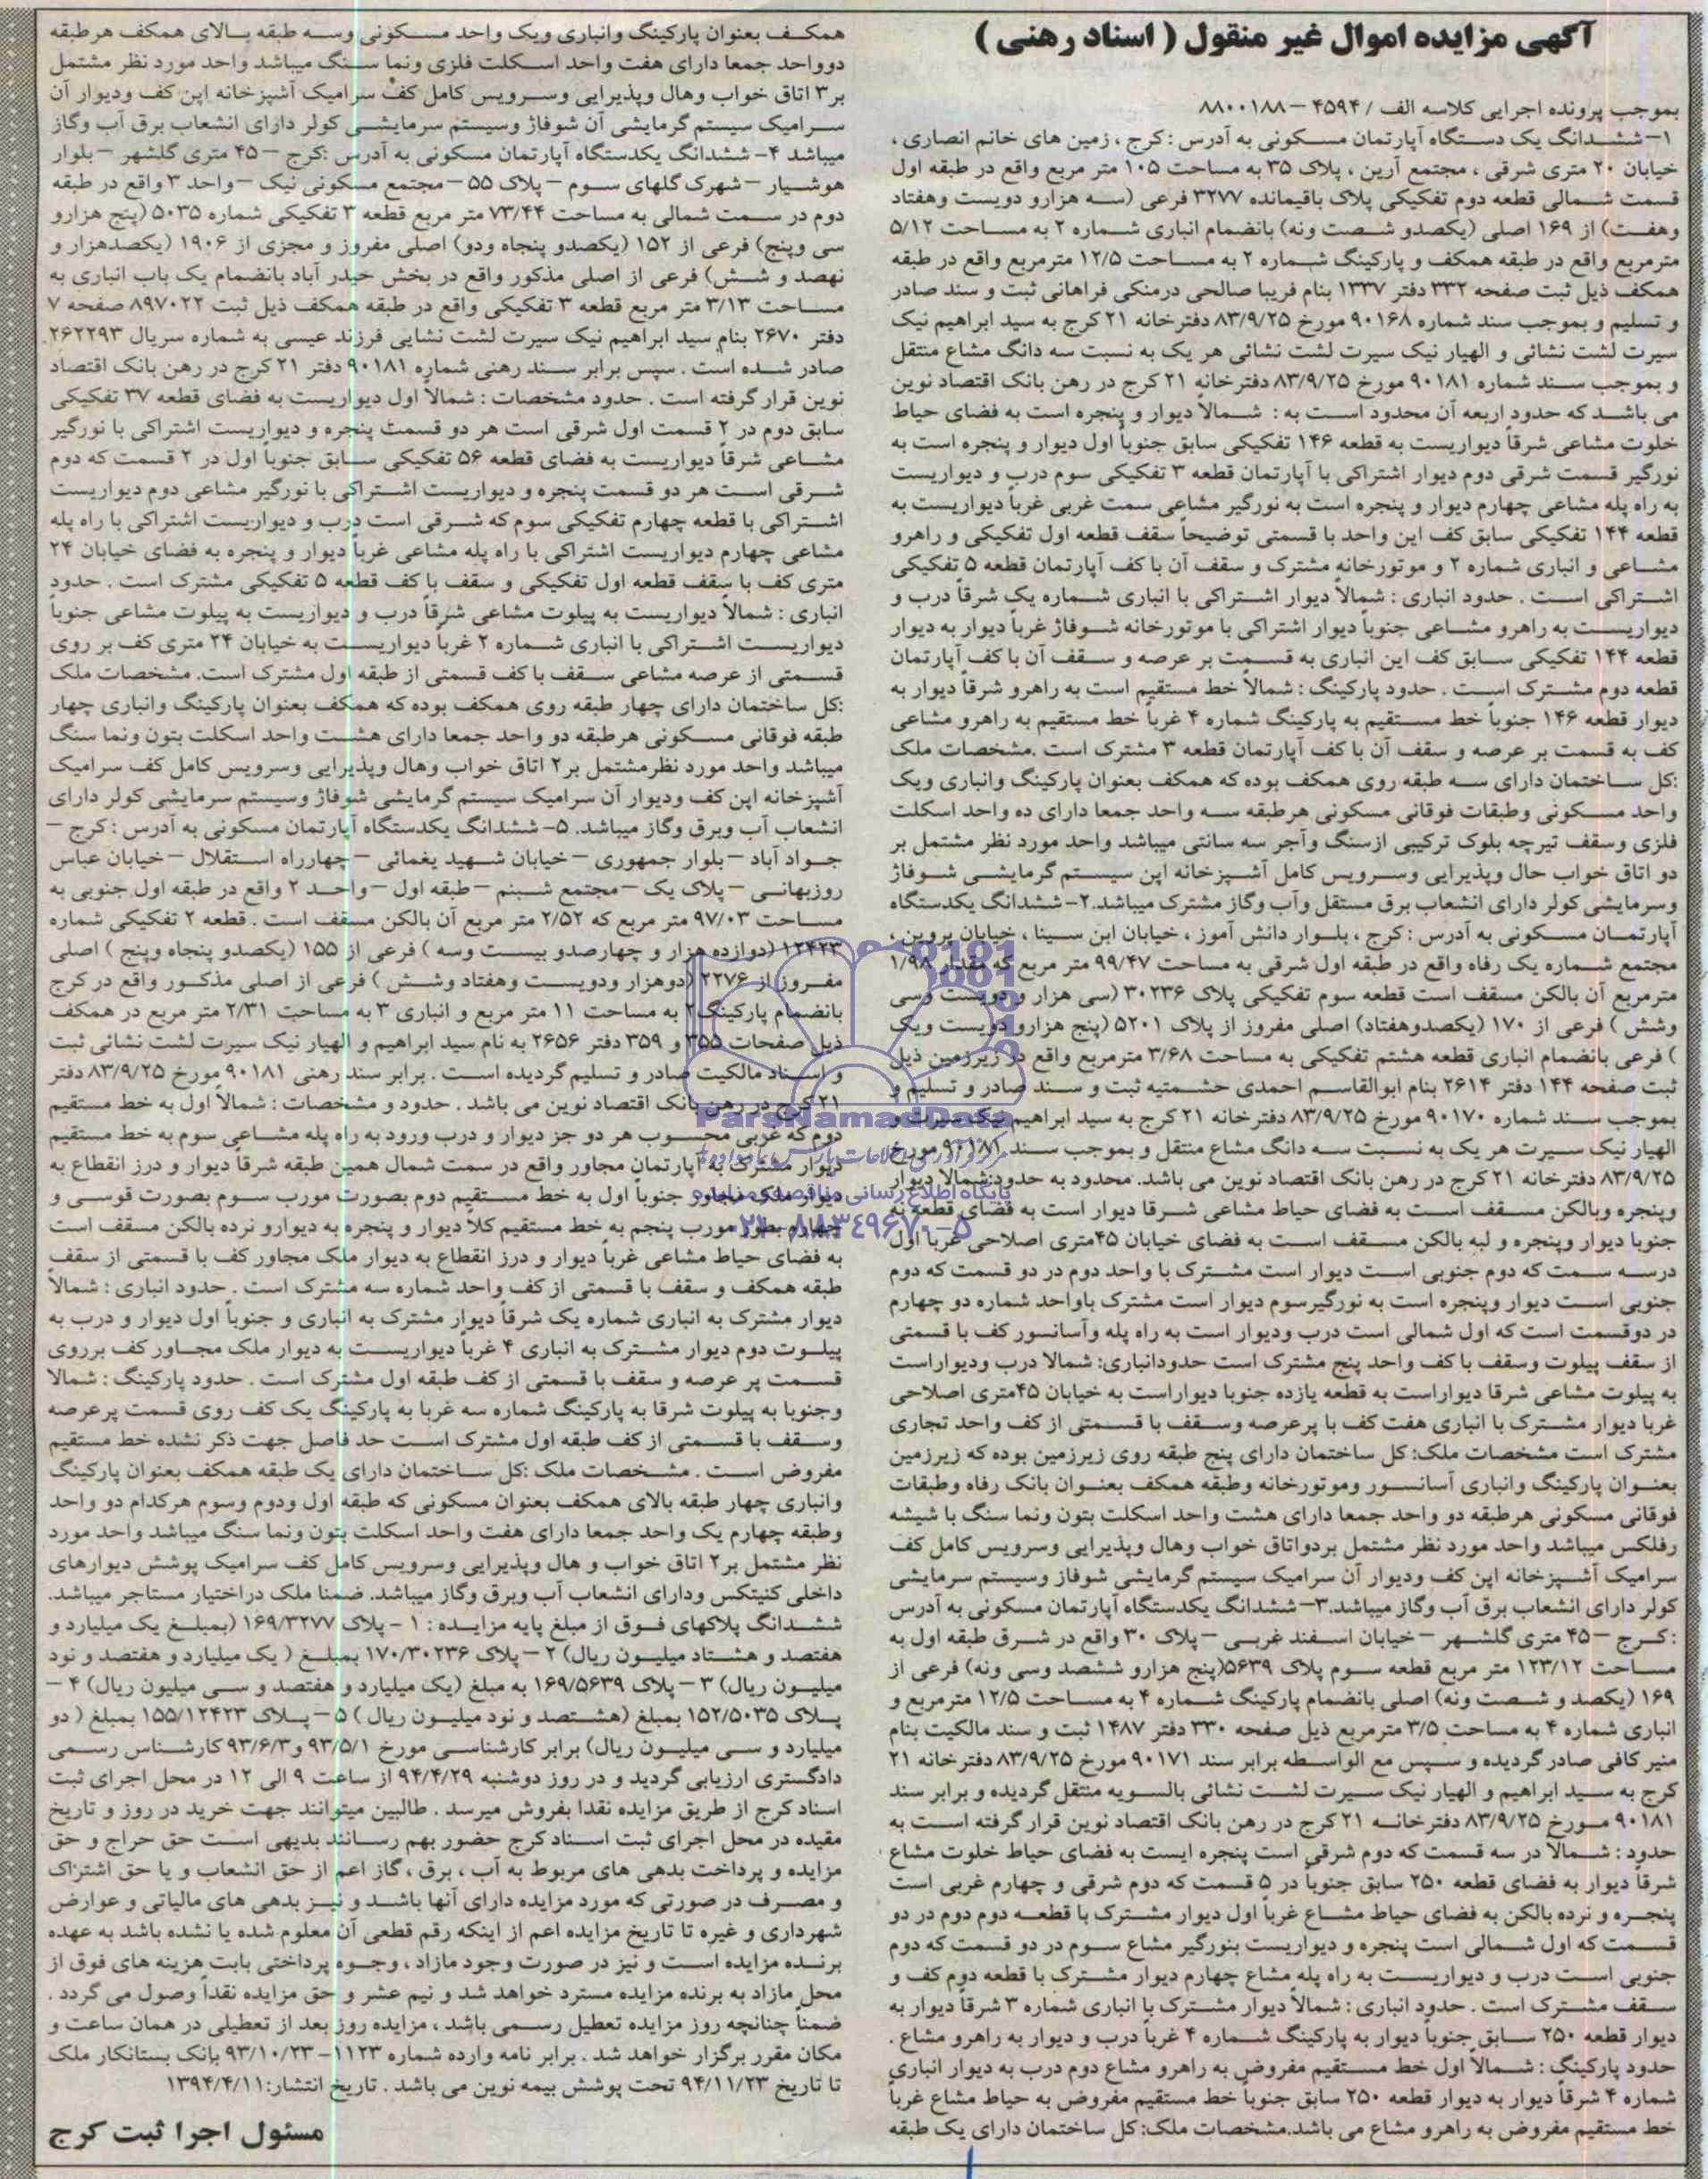 آگهی مزایده اموال غیر منقول ( اسناد رهنی )
بموجب پرونده اجرایی کلاسه الف / ۴۵۹۴ – ۸۸۰۰۱۸۸
۱– ششدانگ یک دستگاه آپارتمان مسکونی به آدرس : کرج ، زمین های خانم انصاری ،
خیابان ۲۰ متری شرقی ، مجتمع آرین ، پلاک ۳۵ به مساحت ۱۰۵ متر مربع واقع در طبقه اول
قسمت شمالی قطعه دوم تفکیکی پلاک باقیمانده ۳۲۷۷ فرعی (سه هزارو دویست وهفتاد
وهفت) از ۱۶۹ اصلی (یکصدو شصت ونه) بانضمام انباری شماره ۲ به مساحت ۵/۱۲
مترمربع واقع در طبقه همکف و پارکینگ شماره ۲ به مساحت ۱۲/۵ مترمربع واقع در طبقه
همکف ذیل ثبت صفحه ۳۳۲ دفتر ۱۳۳۷ بنام فریبا صالحی درمنکی فراهانی ثبت و سند صادر
و تسلیم و بموجب سند شماره ۹۰۱۶۸ مورخ ۸۳/۹/۲۵ دفترخانه ۲۱ کرج به سید ابراهیم نیک
سیرت لشت نشائی و الهیار نیک سیرت لشت نشائی هر یک به نسبت سه دانگ مشاع منتقل
و بموجب سند شماره ۹۰۱۸۱ مورخ ۸۳/۹/۲۵ دفترخانه ۲۱ کرج در رهن بانک اقتصاد نوین
می باشد که حدود اربعه آن محدود است به : شمالاً دیوار و پنجره است به فضای حیاط
خلوت مشاعی شرقاً دیواریست به قطعه ۱۴۶ تفکیکی سابق جنوباً اول دیوار و پنجره است به
نورگیر قسمت شرقی دوم دیوار اشتراکی با آپارتمان قطعه ۳ تفکیکی سوم درب و دیواریست
به راه پله مشاعی چهارم دیوار و پنجره است به نورگیر مشاعی سمت غربی غرباً دیواریست به
قطعه ۱۴۴ تفکیکی سابق کف این واحد با قسمتی توضیحاً سقف قطعه اول تفکیکی و راهرو
مشاعی و انباری شماره ۲ و موتورخانه مشترک و سقف آن با کف آپارتمان قطعه ۵ تفکیکی
اشتراکی است . حدود انباری : شمالاً دیوار اشتراکی با انباری شماره یک شرقاً درب و
دیواریست به راهرو مشاعی جنوباً دیوار اشتراکی با موتورخانه شوفاژ غرباً دیوار به دیوار
قطعه ۱۴۴ تفکیکی سابق کف این انباری به قسمت بر عرصه و سقف آن با کف آپارتمان
قطعه دوم مشترک است . حدود پارکینگ : شمالاً خط مستقیم است به راهرو شرقاً دیوار به
دیوار قطعه ۱۴۶ جنوباً خط مستقیم به پارکینگ شماره ۴ غرباً خط مستقیم به راهرو مشاعی
کف به قسمت بر عرصه و سقف آن با کف آپارتمان قطعه ۳ مشترک است .مشخصات ملک
:کل ساختمان دارای سه طبقه روی همکف بوده که همکف بعنوان پارکینگ وانباری ویک
واحد مسکونی وطبقات فوقانی مسکونی هرطبقه سه واحد جمعا دارای ده واحد اسکلت
فلزی وسقف تیرچه بلوک ترکیبی ازسنگ وآجر سه سانتی میباشد واحد مورد نظر مشتمل بر
دو اتاق خواب حال وپذیرایی وسرویس کامل آشپزخانه اپن سیستم گرمایشی شوفاژ
وسرمایشی کولر دارای انشعاب برق مستقل وآب وگاز مشترک میباشد.۲– ششدانگ یکدستگاه
آپارتمان مسکونی به آدرس : کرج ، بلوار دانش آموز ، خیابان ابن سینا ، خیابان پروین ،
مجتمع شماره یک رفاه واقع در طبقه اول شرقی به مساحت ۹۹/۴۷ متر مربع که مقدار ۱/۹۸
مترمربع آن بالکن مسقف است قطعه سوم تفکیکی پلاک ۳۰۲۳۶ (سی هزار و دویست وسی
وشش ) فرعی از ۱۷۰ (یکصدوهفتاد) اصلی مفروز از پلاک ۵۲۰۱ (پنج هزارو دویست ویک
) فرعی بانضمام انباری قطعه هشتم تفکیکی به مساحت ۳/۶۸ مترمربع واقع در زیرزمین ذیل
ثبت صفحه ۱۴۴ دفتر ۲۶۱۴ بنام ابوالقاسم احمدی حشمتیه ثبت و سند صادر و تسلیم و
بموجب سند شماره ۹۰۱۷۰ مورخ ۸۳/۹/۲۵ دفترخانه ۲۱ کرج به سید ابراهیم نیک سیرت و
الهیار نیک سیرت هر یک به نسبت سه دانگ مشاع منتقل و بموجب سند ۹۰۱۸۱ مورخ
۸۳/۹/۲۵ دفترخانه ۲۱ کرج در رهن بانک اقتصاد نوین می باشد. محدود به حدود:شمالا دیوار
وپنجره وبالکن مسقف است به فضای حیاط مشاعی شرقا دیوار است به فضای قطعه نه
جنوبا دیوار وپنجره و لبه بالکن مسقف است به فضای خیابان ۴۵متری اصلاحی غربا اول
درسه سمت که دوم جنوبی است دیوار است مشترک با واحد دوم در دو قسمت که دوم
جنوبی است دیوار وپنجره است به نورگیرسوم دیوار است مشترک باواحد شماره دو چهارم
در دوقسمت است که اول شمالی است درب ودیوار است به راه پله وآسانسور کف با قسمتی
از سقف پیلوت وسقف با کف واحد پنج مشترک است حدودانباری: شمالا درب ودیواراست
به پیلوت مشاعی شرقا دیواراست به قطعه یازده جنوبا دیواراست به خیابان ۴۵متری اصلاحی
غربا دیوار مشترک با انباری هفت کف با پرعرصه وسقف با قسمتی از کف واحد تجاری
مشترک است مشخصات ملک: کل ساختمان دارای پنج طبقه روی زیرزمین بوده که زیرزمین
بعنوان پارکینگ وانباری آسانسور وموتورخانه وطبقه همکف بعنوان بانک رفاه وطبقات
فوقانی مسکونی هرطبقه دو واحد جمعا دارای هشت واحد اسکلت بتون ونما سنگ با شیشه
رفلکس میباشد واحد مورد نظر مشتمل بردواتاق خواب وهال وپذیرایی وسرویس کامل کف
سرامیک آشپزخانه اپن کف ودیوار آن سرامیک سیستم گرمایشی شوفاز وسیستم سرمایشی
کولر دارای انشعاب برق آب وگاز میباشد.۳– ششدانگ یکدستگاه آپارتمان مسکونی به آدرس
:کرج – ۴۵ متری گلشهر – خیابان اسفند غربی – پلاک ۳۰ واقع در شرق طبقه اول به
مساحت ۱۲۳/۱۲ متر مربع قطعه سوم پلاک ۵۶۳۹(پنج هزارو ششصد وسی ونه) فرعی از
۱۶۹ (یکصد و شصت ونه) اصلی بانضمام پارکینگ شماره ۴ به مساحت ۱۲/۵ مترمربع و
انباری شماره ۴ به مساحت ۳/۵ مترمربع ذیل صفحه ۳۳۰ دفتر ۱۴۸۷ ثبت و سند مالکیت بنام
منیر کافی صادر گردیده و سپس مع الواسطه برابر سند ۹۰۱۷۱ مورخ ۸۳/۹/۲۵ دفترخانه ۲۱
کرج به سید ابراهیم و الهیار نیک سیرت لشت نشائی بالسویه منتقل گردیده و برابر سند
۹۰۱۸۱ مورخ ۸۳/۹/۲۵ دفترخانه ۲۱ کرج در رهن بانک اقتصاد نوین قرار گرفته است به
حدود : شمالاً در سه قسمت که دوم شرقی است پنجره ایست به فضای حیاط خلوت مشاع
شرقاً دیوار به فضای قطعه ۲۵۰ سابق جنوباً در ۵ قسمت که دوم شرقی و چهارم غربی است
پنجره و نرده بالکن به فضای حیاط مشاع غرباً اول دیوار مشترک با قطعه دوم دوم در دو
قسمت که اول شمالی است پنجره و دیواریست بنورگیر مشاع سوم در دو قسمت که دوم
جنوبی است درب و دیواریست به راه پله مشاع چهارم دیوار مشترک با قطعه دوم کف و
سقف مشترک است . حدود انباری : شمالاً دیوار مشترک با انباری شماره ۳ شرقاً دیوار به
دیوار قطعه ۲۵۰ سابق جنوباً دیوار به پارکینگ شماره ۴ غرباً درب و دیوار به راهرو مشاع .
حدود پارکینگ : شمالاً اول خط مستقیم مفروض به راهرو مشاع دوم درب به دیوار انباری
شماره ۴ شرقاً دیوار به دیوار قطعه ۲۵۰ سابق جنوباً خط مستقیم مفروض به حیاط مشاع غرباً
خط مستقیم مفروض به راهرو مشاع می باشد.مشخصات ملک: کل ساختمان دارای یک طبقه
همکف بعنوان پارکینگ وانباری ویک واحد مسکونی وسه طبقه بالای همکف هرطبقه
دوواحد جمعا دارای هفت واحد اسکلت فلزی ونما سنگ میباشد واحد مورد نظر مشتمل
بر۳ اتاق خواب وهال وپذیرایی وسرویس کامل کف سرامیک آشپزخانه اپن کف ودیوار آن
سرامیک سیستم گرمایشی آن شوفاژ وسیستم سرمایشی کولر دارای انشعاب برق آب وگاز
میباشد ۴– ششدانگ یکدستگاه آپارتمان مسکونی به آدرس :کرج – ۴۵ متری گلشهر – بلوار
هوشیار – شهرک گلهای سوم – پلاک ۵۵ – مجتمع مسکونی نیک – واحد ۳ واقع در طبقه
دوم در سمت شمالی به مساحت ۷۳/۴۴ متر مربع قطعه ۳ تفکیکی شماره ۵۰۳۵ (پنج هزارو
سی وپنج) فرعی از ۱۵۲ (یکصدو پنجاه ودو) اصلی مفروز و مجزی از ۱۹۰۶ (یکصدهزار و
نهصد و شش) فرعی از اصلی مذکور واقع در بخش حیدر آباد بانضمام یک باب انباری به
مساحت ۳/۱۳ متر مربع قطعه ۳ تفکیکی واقع در طبقه همکف ذیل ثبت ۸۹۷۰۲۲ صفحه ۷
دفتر ۲۶۷۰ بنام سید ابراهیم نیک سیرت لشت نشایی فرزند عیسی به شماره سریال ۲۶۲۲۹۳
صادر شده است . سپس برابر سند رهنی شماره ۹۰۱۸۱ دفتر ۲۱ کرج در رهن بانک اقتصاد
نوین قرار گرفته است . حدود مشخصات : شمالاً اول دیواریست به فضای قطعه ۳۷ تفکیکی
سابق دوم در ۲ قسمت اول شرقی است هر دو قسمت پنجره و دیواریست اشتراکی با نورگیر
مشاعی شرقاً دیواریست به فضای قطعه ۵۶ تفکیکی سابق جنوباً اول در ۲ قسمت که دوم
شرقی است هر دو قسمت پنجره و دیواریست اشتراکی با نورگیر مشاعی دوم دیواریست
اشتراکی با قطعه چهارم تفکیکی سوم که شرقی است درب و دیواریست اشتراکی با راه پله
مشاعی چهارم دیواریست اشتراکی با راه پله مشاعی غرباً دیوار و پنجره به فضای خیابان ۲۴
متری کف با سقف قطعه اول تفکیکی و سقف با کف قطعه ۵ تفکیکی مشترک است . حدود
انباری : شمالاً دیواریست به پیلوت مشاعی شرقاً درب و دیواریست به پیلوت مشاعی جنوباً
دیواریست اشتراکی با انباری شماره ۲ غرباً دیواریست به خیابان ۲۴ متری کف بر روی
قسمتی از عرصه مشاعی سقف با کف قسمتی از طبقه اول مشترک است. مشخصات ملک
:کل ساختمان دارای چهار طبقه روی همکف بوده که همکف بعنوان پارکینگ وانباری چهار
طبقه فوقانی مسکونی هرطبقه دو واحد جمعا دارای هشت واحد اسکلت بتون ونما سنگ
میباشد واحد مورد نظرمشتمل بر۲ اتاق خواب وهال وپذیرایی وسرویس کامل کف سرامیک
آشپزخانه اپن کف ودیوار آن سرامیک سیستم گرمایشی شوفاژ وسیستم سرمایشی کولر دارای
انشعاب آب وبرق وگاز میباشد. ۵– ششدانگ یکدستگاه آپارتمان مسکونی به آدرس : کرج –
جواد آباد – بلوار جمهوری – خیابان شهید یغمائی – چهارراه استقلال – خیابان عباس
روزبهانی – پلاک یک – مجتمع شبنم – طبقه اول – واحد ۲ واقع در طبقه اول جنوبی به
مساحت ۹۷/۰۳ متر مربع که ۲/۵۲ متر مربع آن بالکن مسقف است . قطعه ۲ تفکیکی شماره
۱۲۴۲۳ (دوازده هزار و چهارصدو بیست وسه ) فرعی از ۱۵۵ (یکصدو پنجاه وپنج ) اصلی
مفروز از ۲۲۷۶ (دوهزار ودویست وهفتاد وشش ) فرعی از اصلی مذکور واقع در کرج
بانضمام پارکینگ ۲ به مساحت ۱۱ متر مربع و انباری ۳ به مساحت ۲/۳۱ متر مربع در همکف
ذیل صفحات ۳۵۵ و ۳۵۹ دفتر ۲۶۵۶ به نام سید ابراهیم و الهیار نیک سیرت لشت نشائی ثبت
و اسناد مالکیت صادر و تسلیم گردیده است . برابر سند رهنی ۹۰۱۸۱ مورخ ۸۳/۹/۲۵ دفتر
۲۱ کرج در رهن بانک اقتصاد نوین می باشد . حدود و مشخصات : شمالاً اول به خط مستقیم
دوم که غربی محسوب هر دو جز دیوار و درب ورود به راه پله مشاعی سوم به خط مستقیم
دیوار مشترک به آپارتمان مجاور واقع در سمت شمال همین طبقه شرقاً دیوار و درز انقطاع به
دیوار ملک مجاور جنوباً اول به خط مستقیم دوم بصورت مورب سوم بصورت قوسی و
چهارم بطور مورب پنجم به خط مستقیم کلاً دیوار و پنجره به دیوارو نرده بالکن مسقف است
به فضای حیاط مشاعی غرباً دیوار و درز انقطاع به دیوار ملک مجاور کف با قسمتی از سقف
طبقه همکف و سقف با قسمتی از کف واحد شماره سه مشترک است . حدود انباری : شمالاً
دیوار مشترک به انباری شماره یک شرقاً دیوار مشترک به انباری و جنوباً اول دیوار و درب به
پیلوت دوم دیوار مشترک به انباری ۴ غرباً دیواریست به دیوار ملک مجاور کف برروی
قسمت پر عرصه و سقف با قسمتی از کف طبقه اول مشترک است . حدود پارکینگ : شمالا
وجنوبا به پیلوت شرقا به پارکینگ شماره سه غربا به پارکینگ یک کف روی قسمت پرعرصه
وسقف با قسمتی از کف طبقه اول مشترک است حد فاصل جهت ذکر نشده خط مستقیم
مفروض است . مشخصات ملک :کل ساختمان دارای یک طبقه همکف بعنوان پارکینگ
وانباری چهار طبقه بالای همکف بعنوان مسکونی که طبقه اول ودوم وسوم هرکدام دو واحد
وطبقه چهارم یک واحد جمعا دارای هفت واحد اسکلت بتون ونما سنگ میباشد واحد مورد
نظر مشتمل بر۲ اتاق خواب و هال وپذیرایی وسرویس کامل کف سرامیک پوشش دیوارهای
داخلی کنیتکس ودارای انشعاب آب وبرق وگاز میباشد. ضمنا ملک دراختیار مستاجر میباشد.
ششدانگ پلاکهای فوق از مبلغ پایه مزایده : ۱ – پلاک ۱۶۹/۳۲۷۷ (بمبلغ یک میلیارد و
هفتصد و هشتاد میلیون ریال) ۲ – پلاک ۱۷۰/۳۰۲۳۶ بمبلغ ( یک میلیارد و هفتصد و نود
میلیون ریال) ۳ – پلاک ۱۶۹/۵۶۳۹ به مبلغ (یک میلیارد و هفتصد و سی میلیون ریال) ۴ –
پلاک ۱۵۲/۵۰۳۵ بمبلغ (هشتصد و نود میلیون ریال ) ۵ – پلاک ۱۵۵/۱۲۴۲۳ بمبلغ ( دو
میلیارد و سی میلیون ریال) برابر کارشناسی مورخ ۹۳/۵/۱ و۹۳/۶/۳ کارشناس رسمی
دادگستری ارزیابی گردید و در روز دوشنبه ۹۴/۴/۲۹ از ساعت ۹ الی ۱۲ در محل اجرای ثبت
اسناد کرج از طریق مزایده نقدا بفروش میرسد . طالبین میتوانند جهت خرید در روز و تاریخ
مقیده در محل اجرای ثبت اسناد کرج حضور بهم رسانند بدیهی است حق حراج و حق
مزایده و پرداخت بدهی های مربوط به آب ، برق ، گاز اعم از حق انشعاب و یا حق اشتراک
و مصرف در صورتی که مورد مزایده دارای آنها باشد و نیز بدهی های مالیاتی و عوارض
شهرداری و غیره تا تاریخ مزایده اعم از اینکه رقم قطعی آن معلوم شده یا نشده باشد به عهده
برنده مزایده است و نیز در صورت وجود مازاد ، وجوه پرداختی بابت هزینه های فوق از
محل مازاد به برنده مزایده مسترد خواهد شد و نیم عشر و حق مزایده نقداً وصول می گردد .
ضمناً چنانچه روز مزایده تعطیل رسمی باشد ، مزایده روز بعد از تعطیلی در همان ساعت و
مکان مقرر برگزار خواهد شد . برابر نامه وارده شماره ۱۱۲۳– ۹۳/۱۰/۲۳ بانک بستانکار ملک
تا تاریخ ۹۴/۱۱/۲۳ تحت پوشش بیمه نوین می باشد . تاریخ انتشار:۱۳۹۴/۴/۱۱
مسئول اجرا ثبت کرج
ParsNamadData
پایگاه اطلاع رسانی مناقصه و مزایده
۰۲۱-۸۸۳۴۹۶۷۰-۵